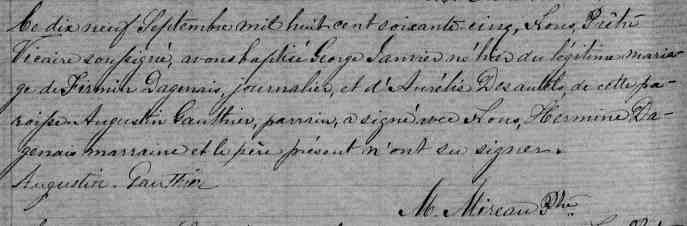 Ce dix neuf Septembre mil huit cent soixante cinq, Nous, Prêtre
Vicaire soussigné, avons baptisé George Janvier né hier du légitime maria-
ge de Firmin Dagenais, journalier, et d'Aurélie Desautels, de cette pa-
roisse. Augustin Gauthier, parrain, a signé avec Nous, Hermine Da-
genais marraine et le père présent n'ont su signer.
Augustin Gauthier
M. Mireau Ptre